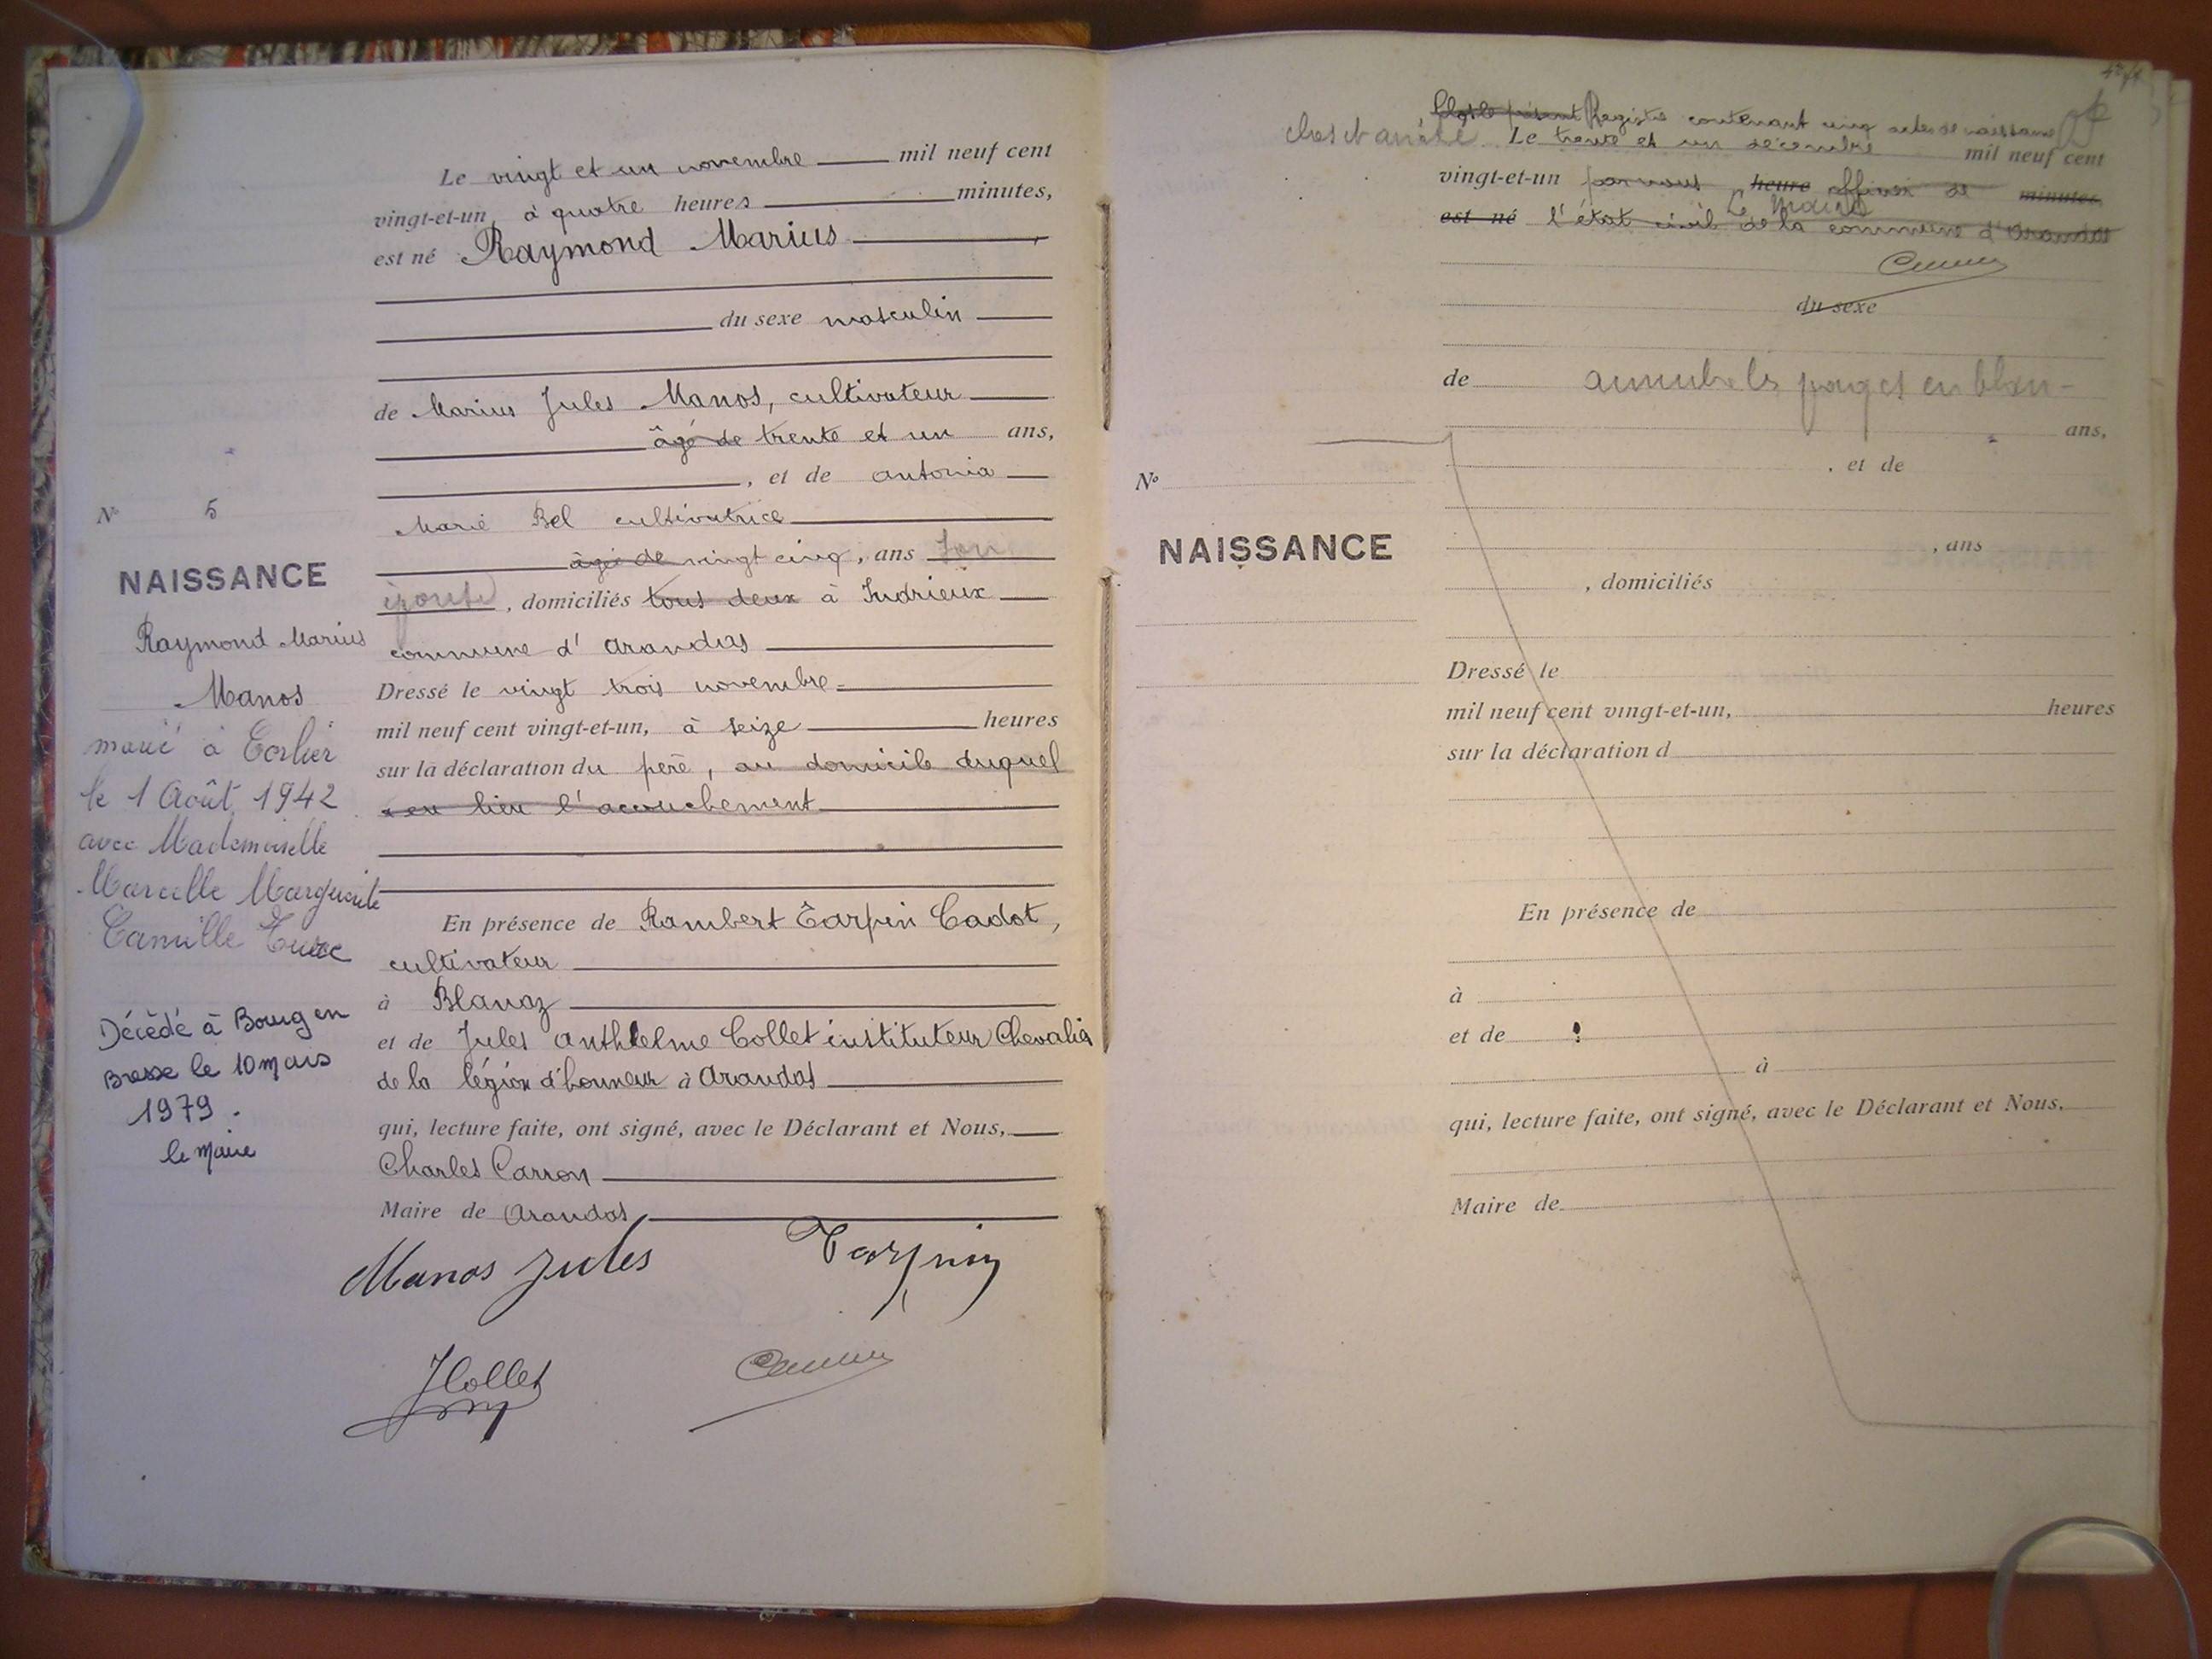 Le vingt et un novembre mil neuf cent
vingt-et-un, à quatre heures minutes,
est né Raymond Marius
du sexe masculin
de Marius Jules Manos, cultivateur
âgé de trente et un ans,
, et de antonia
Marie Bel cultivatrice
âgée de vingt cinq, ans
épouse, domiciliés tous deux à Indrieux
commune d' Arandas
Dressé le vingt trois novembre
mil neuf cent vingt-et-un, à seize heures
sur la déclaration du père, au domicile duquel
a eu lieu l'accouchement
En présence de Rambert Tarpin Cadot,
cultivateur
à Blanaz
et de Jules Anthelme Collet instituteur Chevalier
de la légion d'honneur à Arandas
qui, lecture faite, ont signé, avec le Déclarant et Nous,
Charles Carron
Maire de Arandas
Manos Jules Tarpin
JCollet
N° 5
NAISSANCE
Raymond Marius
Manos
marié à
le 1 Août 1942
avec Mademoiselle
Marcelle Marguerite
Camille
Décédé à Bourg en
Bresse le 10 mars
1979.
le Maire
Clos le présent Registre contenant cinq actes de naissance
clos et arrêté Le trente et un décembre mil neuf cent
vingt-et-un par nous heure officier de minutes,
Le Maire
est né l'état civil de la commune d'Arandas
du sexe
de annule les pages en blan-
ans,
, et de
N°
NAISSANCE
, ans
, domiciliés
Dressé le
mil neuf cent vingt-et-un, heures
sur la déclaration d
En présence de
à
et de
à
qui, lecture faite, ont signé, avec le Déclarant et Nous,
Maire de